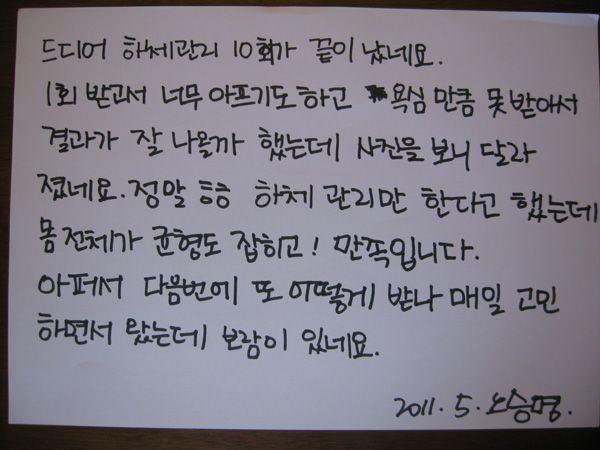 드디어 하체관리 10회가 끝이 났네요.
1회 받고서 너무 아프기도하고 욕심만큼 못 받아서
결과가 잘 나올까 했는데 사진을 보니 달라
졌네요. 정말 하체 관리만 한다고 했는데
몸 전체가 균형도 잡히고! 만족입니다.
아퍼서 다음번에 또 어떻게 받나 매일 고민
하면서 왔는데 보람이 있네요.
2011. 5. 노승명.